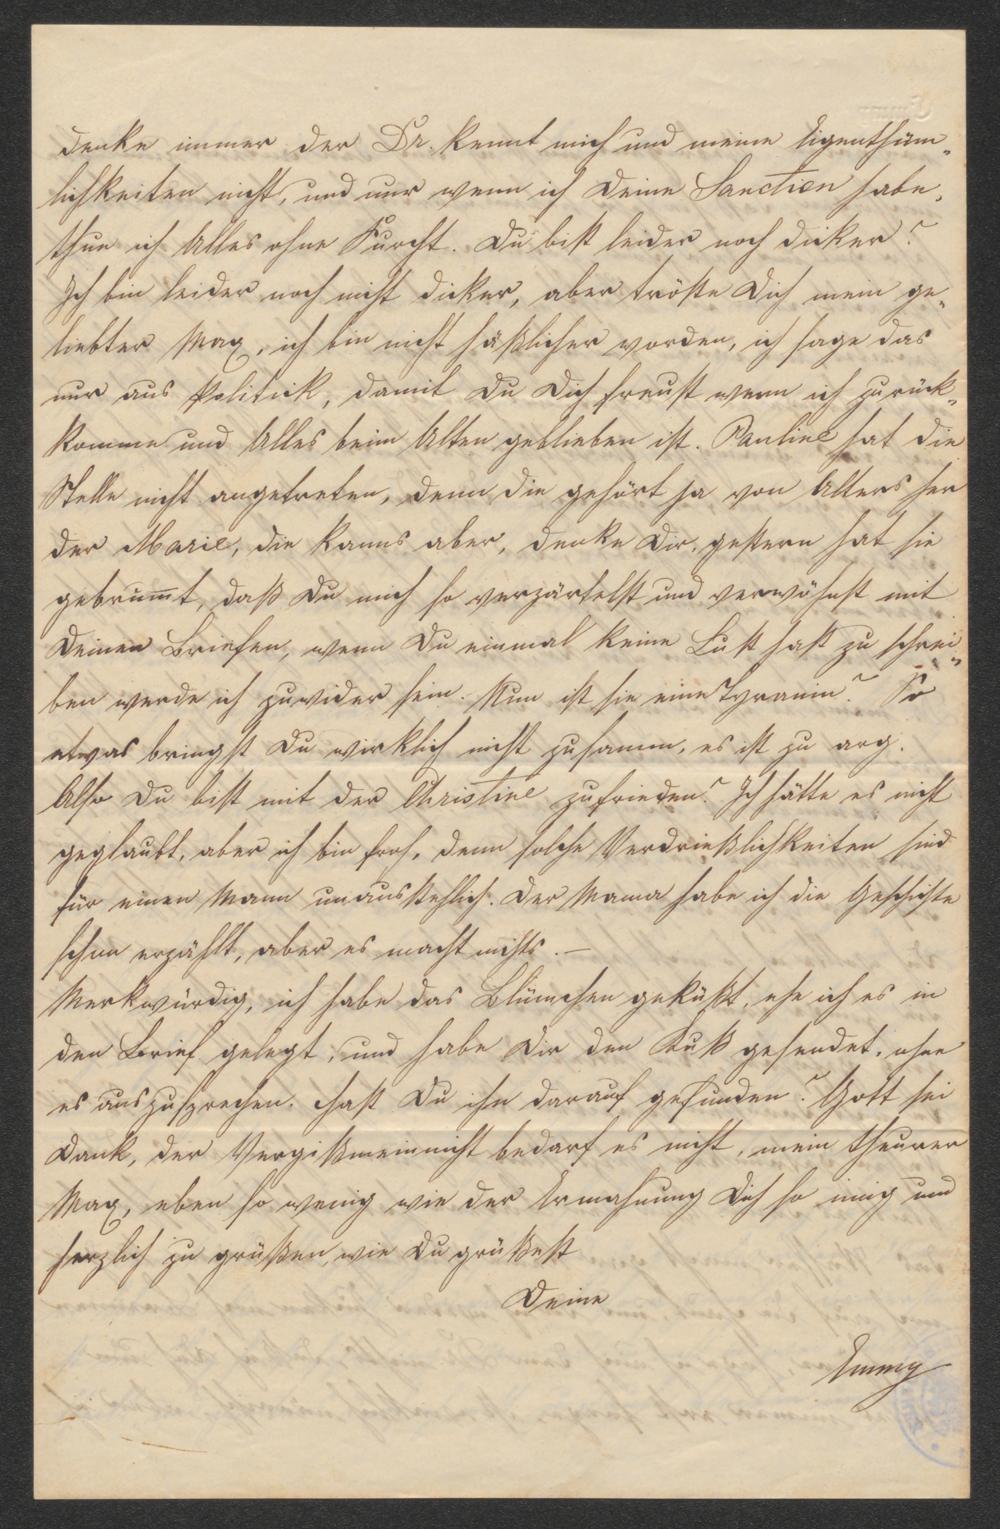 denke immer der Dr. kennt mich und meine Eigenthüm„
lichkeiten nicht, und nur wenn ich Deine Sanction habe,
thue ich Alles ohne Furcht. Du bist leider noch dicker?
Ich bin leider noch nicht dicker, aber tröste Dich mein ge„
liebter Max, ich bin nicht häßlicher worden, ich sage das
nur aus Politick, damit Du Dich freust wenn ich zurück„
komme und Alles beim Alten geblieben ist. Pauline hat die
Stelle nicht angetreten, denn die gehört ja von Alters her
der Marie, die kanns aber, denke Dir, gestern hat sie
gebrum̅t, daß Du mich so verzärtelst und verwöhnst mit
Deinen Briefen, wenn Du einmal keine Lust hast zu schrei„
ben werde ich zuwider sein. Nun ist sie eine Tyranin? So
etwas bringst Du wirklich nicht zusamm, es ist zu arg.
Also Du bist mit der Christine zufrieden? Ich hätte es nicht
geglaubt, aber ich bin froh, denn solche Verdrießlichkeiten sind
für einen Mann unausstehlich. Der Mama habe ich die Geschichte
schon erzählt, aber es macht nichts. —
Merkwürdig, ich habe das Blümchen geküßt, ehe ich es in
den Brief gelegt, und habe Dir den Kuß gesendet, ohne
es auszusprechen. Hast Du ihn darauf gefunden? Gott sei
Dank, der Vergißmeinnicht bedarf es nicht, mein theurer
Max, eben so wenig wie der Ermahnung Dich so innig und
herzlich zu grüßen, wie Du grüßest
Deine
Emmy